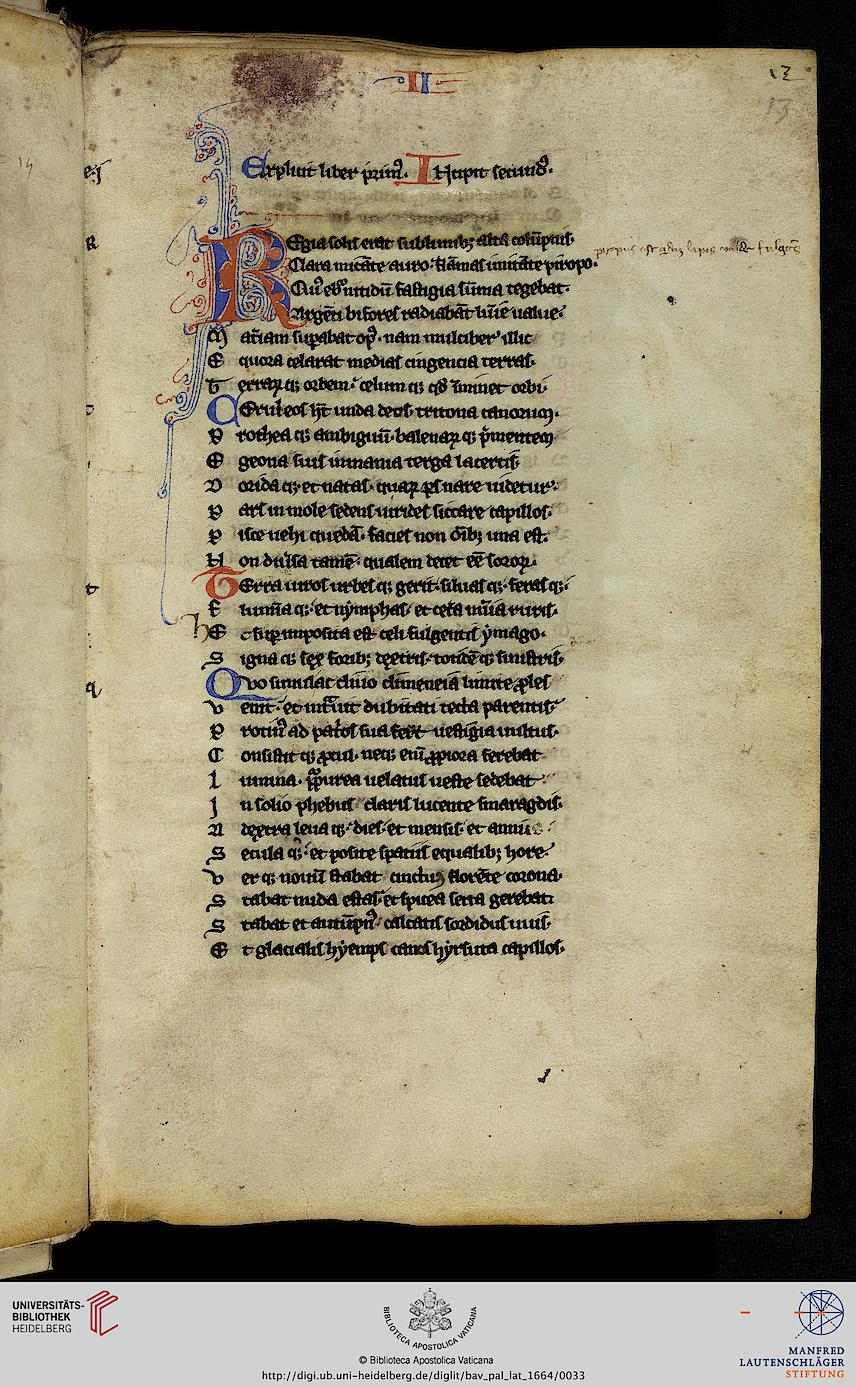 II
12
13
14
Explicit liber prim᷒. Incipit secund᷒.
REgia solis erat sublimib; alta colūpnis.
Clara micāte auro. flāmas imitāte piropo.
Cui᷒ ebur nitidū fastigia sūma tegebat.
Argēti bifores radiabāt lūīe ualue.
Mat͛iam suꝑabat op᷒. nam mulciber illic
Equora celarat medias cingencia terras.
Terraꝝ q; orbem. celum q; qđ iminet orbi.
CEruleos ht͛ unda deos. tritona canorum.
Prothea q; ambiguū. balenaꝝ q; p̄mentem
Egeona suis inmania terga lacertis.
Dorida q; et natas. quaꝝ ps̄ nare uidetur.
Pars in mole sedens uirides siccare capillos.
Pisce uehi quedā. facies non oīb; una est.
Non diu͛sa tam̄. qualem decet eē soroꝝ.
TErra uiros urbes q; gerit. siluas q; feras q;.
Flumīa q; et nymphas. et cet͛a nūīa ruris.
hEc suꝑ imposita est celi fulgentis ymago.
Signa q; sex forib; dextris. totidē q; sinistris.
QVo simul ac cliuo climeneia limite ꝓles
Venit. et int͛uit dubitati tecta parentis.
Protin᷒ ad pat͛os sua fert uestigia uultus.
Consistit q; ꝓcul. neq; enī ꝓpiora ferebat
Lumina. purpurea uelatus ueste sedebat
Jn solio phebus claris lucente smaragdis.
A dextra leua q; dies. et mensis. et annus
Secula q;. et posite spatiis equalib; hore.
Ver q; nouū stabat cinctum florēte corona.
Stabat nuda estas. et spicea serta gerebat.
Stabat et autūpn᷒. calcatis sordidus uuis.
Et glacialis hyemps canos hyrsuta capillos.
R
t
q
UNIVERSITÄTS-
BIBLIOTHEK
HEIDELBERG
BIBLIOTECA APOSTOLICA VATICANA
© Biblioteca Apostolica Vaticana
http://digi.ub.uni-heidelberg.de/diglit/bav_pal_lat_1664/0033
MANFRED
LAUTENSCHLÄGER
STIFTUNG